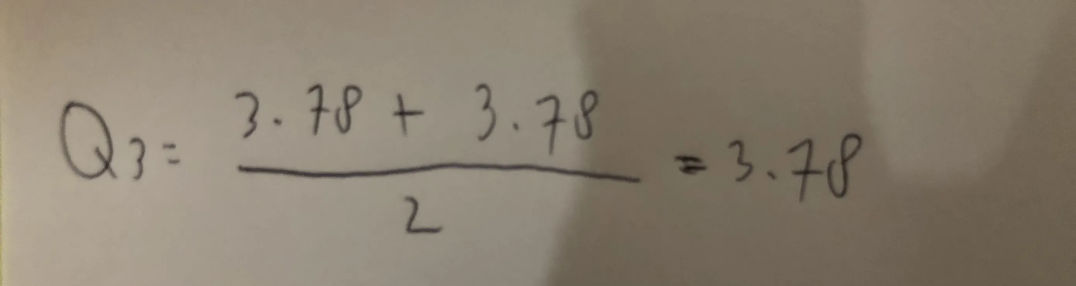 Q3 = (3.78 + 3.78) / 2 = 3.78